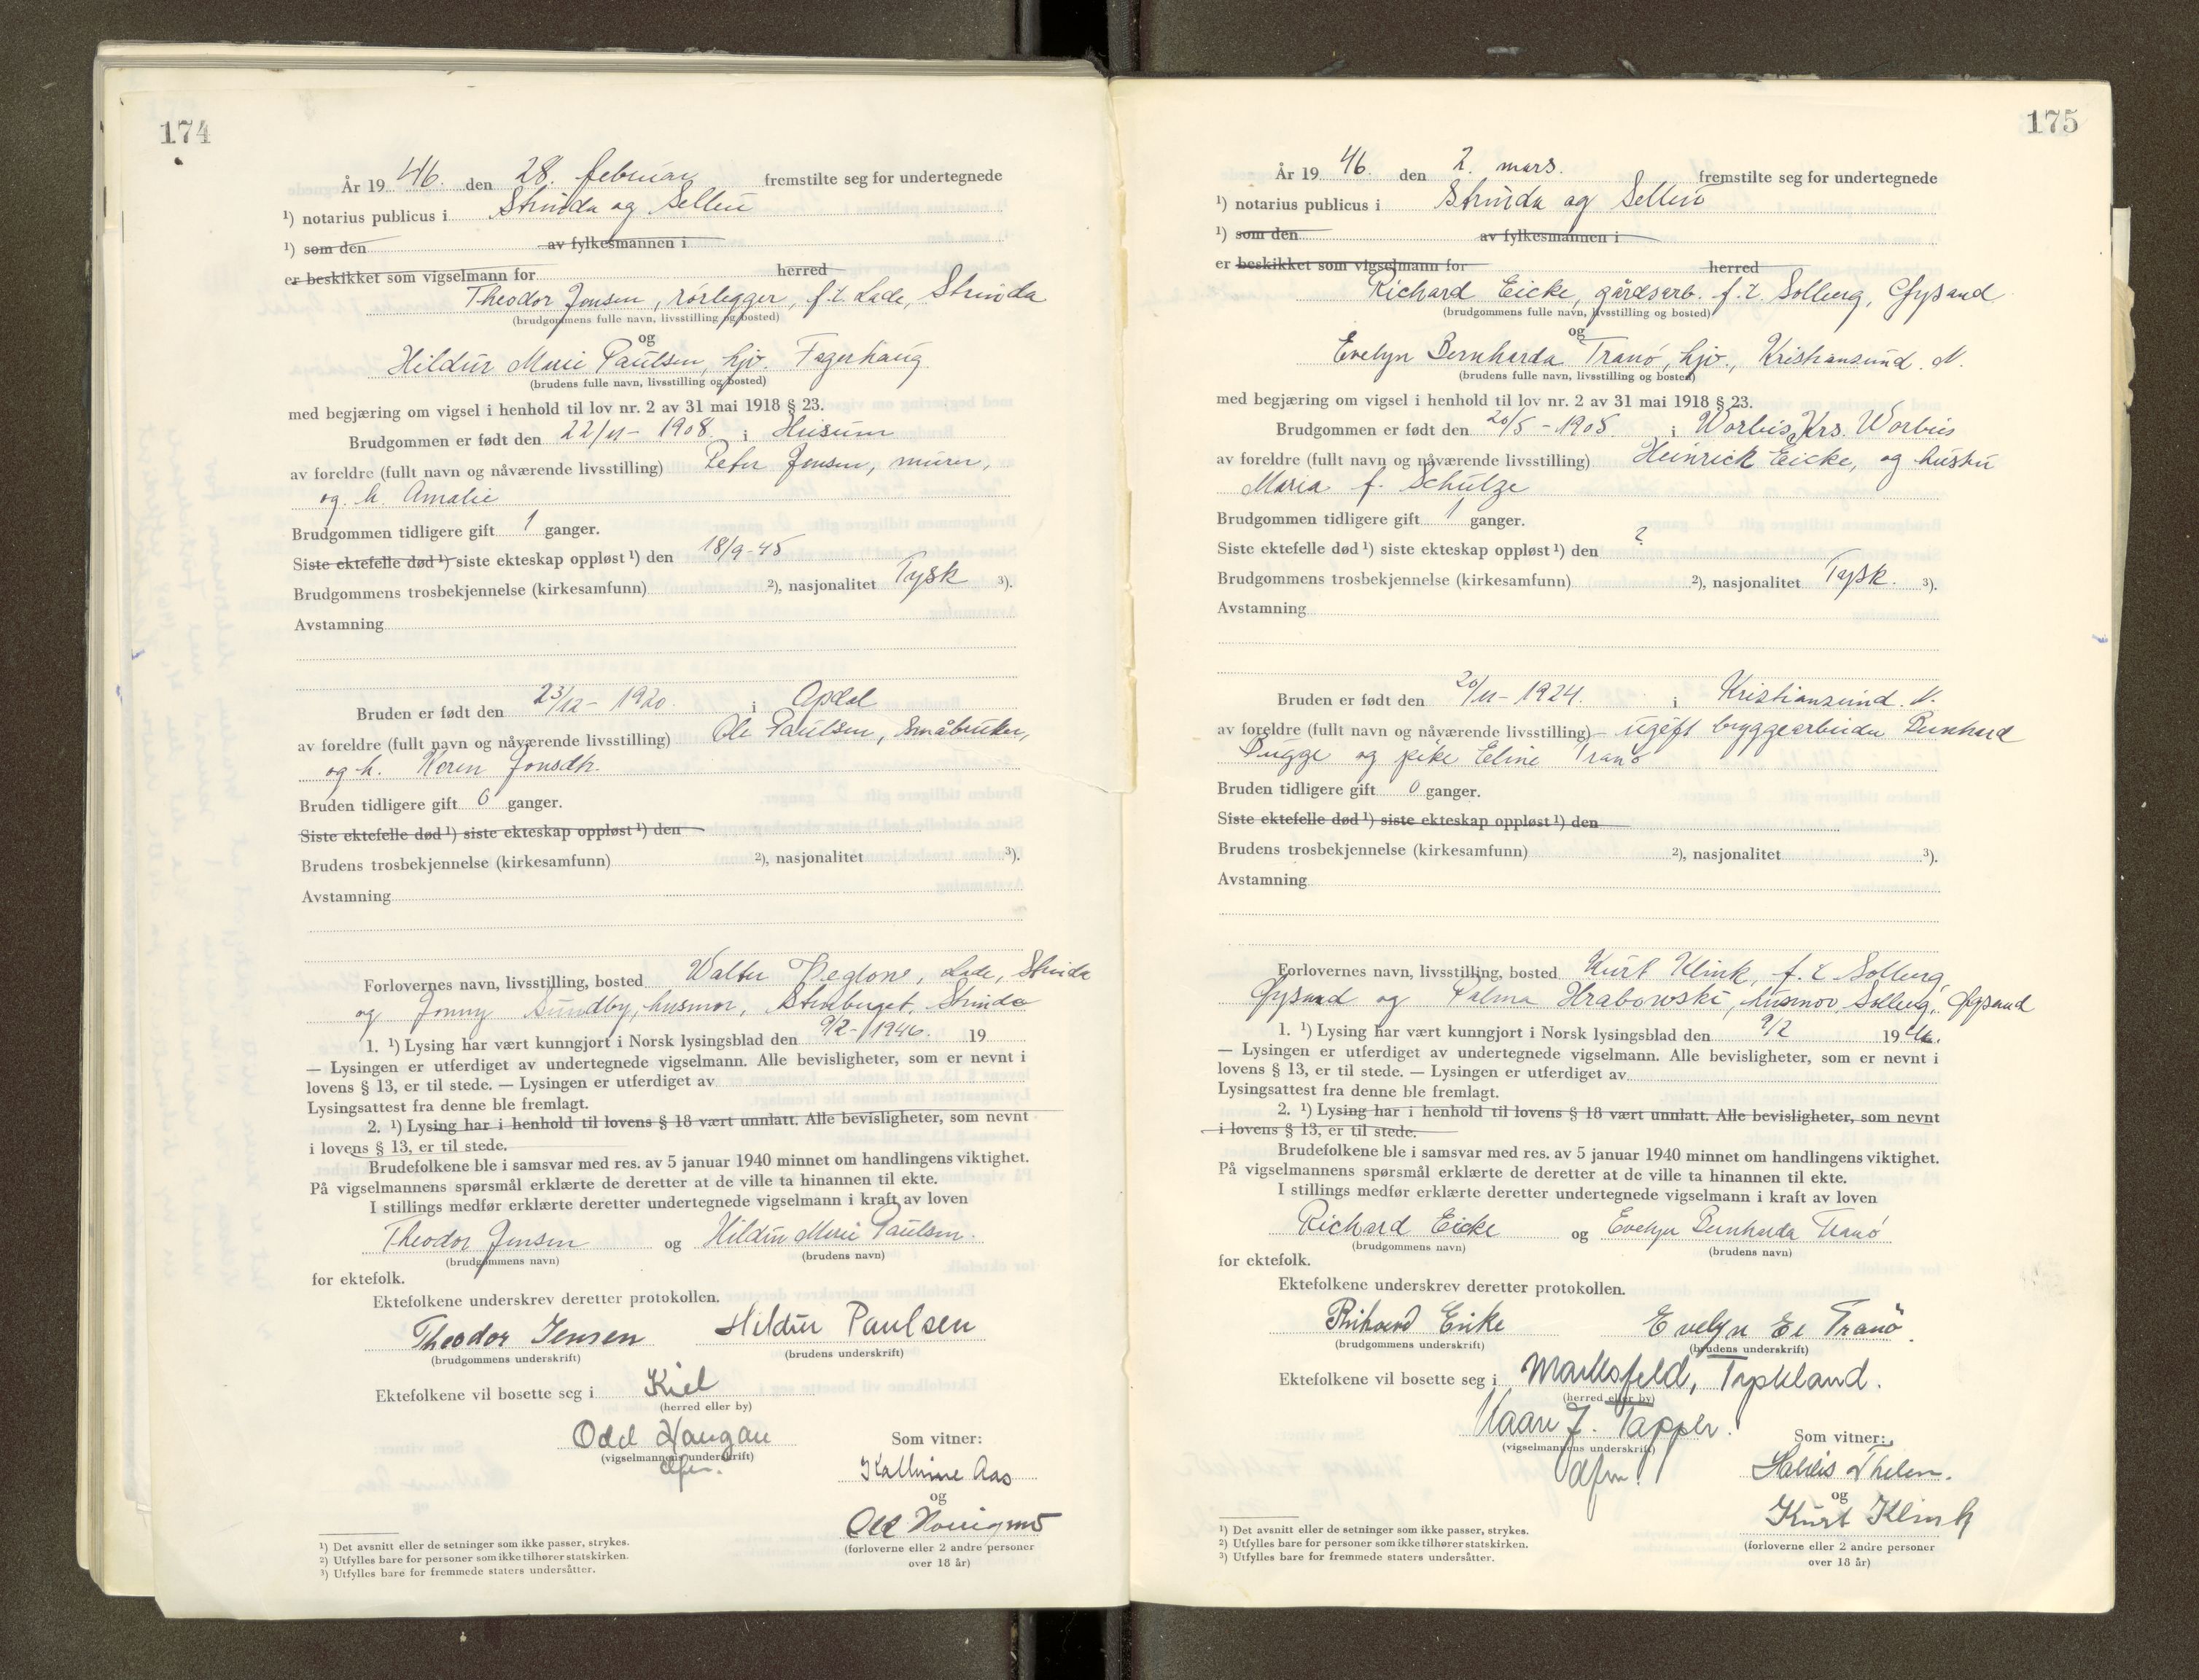 174
År 19 46. den 28. februar fremstilte seg for undertegnede
¹) notarius publicus i Strinda og Selbu
¹) som den av fylkesmannen i
er beskikket som vigselmann for herred
Theodor Jensen, rørlegger, f.t. Lade, Strinda
(brudgommens fulle navn, livsstilling og bosted)
og
Hildur Marie Paulsen, hjv. Fagerhaug
(brudens fulle navn, livsstilling og bosted)
med begjæring om vigsel i henhold til lov nr. 2 av 31 mai 1918 § 23.
Brudgommen er født den 22/11- 1908. i Husum
av foreldre (fullt navn og nåværende livsstilling) Peter Jensen, murer,
og h. Amalie
Brudgommen tidligere gift 1 ganger.
Siste ektefelle død ¹) siste ekteskap oppløst ¹) den 18/9-45
Brudgommens trosbekjennelse (kirkesamfunn) ²), nasjonalitet Tysk ³).
Avstamning
Bruden er født den 23/12- 1920. i Opdal
av foreldre (fullt navn og nåværende livsstilling) Ole Paulsen, småbruker,
og h. Karen Jonsdtr.
Bruden tidligere gift 0 ganger.
Siste ektefelle død ¹) siste ekteskap oppløst ¹) den
Brudens trosbekjennelse (kirkesamfunn) ²), nasjonalitet ³).
Avstamning
Forlovernes navn, livsstilling, bosted Walter Peglow, Lade, Strinda
og Jonny Sundby, husmor, Strinda
1. ¹) Lysing har vært kunngjort i Norsk lysingsblad den 9/2-1946. 19
— Lysingen er utferdiget av undertegnede vigselmann. Alle bevisligheter, som er nevnt i
lovens § 13, er til stede. — Lysingen er utferdiget av
Lysingsattest fra denne ble fremlagt.
2. ¹) Lysing har i henhold til lovens § 18 vært unnlatt. Alle bevisligheter, som nevnt
i lovens § 13, er til stede.
Brudefolkene ble i samsvar med res. av 5 januar 1940 minnet om handlingens viktighet.
På vigselmannens spørsmål erklærte de deretter at de ville ta hinannen til ekte.
I stillings medfør erklærte deretter undertegnede vigselmann i kraft av loven
Theodor Jensen og Hildur Marie Paulsen.
(brudgommens navn) (brudens navn)
for ektefolk.
Ektefolkene underskrev deretter protokollen.
Theodor Jensen Hildur Paulsen
(brudgommens underskrift) (brudens underskrift)
Ektefolkene vil bosette seg i Kiel
(herred eller by)
Odd Haugan Som vitner:
(vigselmannens underskrift)
dfm. Kathrine Aas
og
(forloverne eller 2 andre personer
over 18 år)
¹) Det avsnitt eller de setninger som ikke passer, strykes.
²) Utfylles bare for personer som ikke tilhører statskirken.
³) Utfylles bare for fremmede staters undersåtter.
175
År 19 46. den 2. mars. fremstilte seg for undertegnede
¹) notarius publicus i Strinda og Selbu
¹) som den av fylkesmannen i
er beskikket som vigselmann for herred
Richard Eicke, gårdsarb. f.t. Solberg, Øysand
(brudgommens fulle navn, livsstilling og bosted)
og
Evelyn Bernharda Tranø, hjv., Kristiansund. N.
(brudens fulle navn, livsstilling og bosted)
med begjæring om vigsel i henhold til lov nr. 2 av 31 mai 1918 § 23.
Brudgommen er født den 20/5 - 1905. i Worbis, Krs. Worbis
av foreldre (fullt navn og nåværende livsstilling) Heinrick Eicke, og hustru
Maria f. Schulze
Brudgommen tidligere gift 1 ganger.
Siste ektefelle død ¹) siste ekteskap oppløst ¹) den ?
Brudgommens trosbekjennelse (kirkesamfunn) ²), nasjonalitet Tysk. ³).
Avstamning
Bruden er født den 20/11- 1924. i Kristiansund. N.
av foreldre (fullt navn og nåværende livsstilling) - ugift bryggearbeider Bernhard
Bugge og pike Eline Tranø
Bruden tidligere gift 0 ganger.
Siste ektefelle død ¹) siste ekteskap oppløst ¹) den
Brudens trosbekjennelse (kirkesamfunn) ²), nasjonalitet ³).
Avstamning
Forlovernes navn, livsstilling, bosted Kurt Klink, f.t. Solberg,
Øysand og Palma Hrabowski, husmor, Solberg, Øysand
1. ¹) Lysing har vært kunngjort i Norsk lysingsblad den 9/2 19 46.
— Lysingen er utferdiget av undertegnede vigselmann. Alle bevisligheter, som er nevnt i
lovens § 13, er til stede. — Lysingen er utferdiget av
Lysingsattest fra denne ble fremlagt.
2. ¹) Lysing har i henhold til lovens § 18 vært unnlatt. Alle bevisligheter, som nevnt
i lovens § 13, er til stede.
Brudefolkene ble i samsvar med res. av 5 januar 1940 minnet om handlingens viktighet.
På vigselmannens spørsmål erklærte de deretter at de ville ta hinannen til ekte.
I stillings medfør erklærte deretter undertegnede vigselmann i kraft av loven
Richard Eicke og Evelyn Bernharda Tranø
(brudgommens navn) (brudens navn)
for ektefolk.
Ektefolkene underskrev deretter protokollen.
Richard Eicke Evelyn Tranö.
(brudgommens underskrift) (brudens underskrift)
Ektefolkene vil bosette seg i Marksfeld, Tyskland.
(herred eller by)
Kaare J. Tapper. Som vitner:
(vigselmannens underskrift)
dfm. Thelen.
og
Kurt Klink
(forloverne eller 2 andre personer
over 18 år)
¹) Det avsnitt eller de setninger som ikke passer, strykes.
²) Utfylles bare for personer som ikke tilhører statskirken.
³) Utfylles bare for fremmede staters undersåtter.